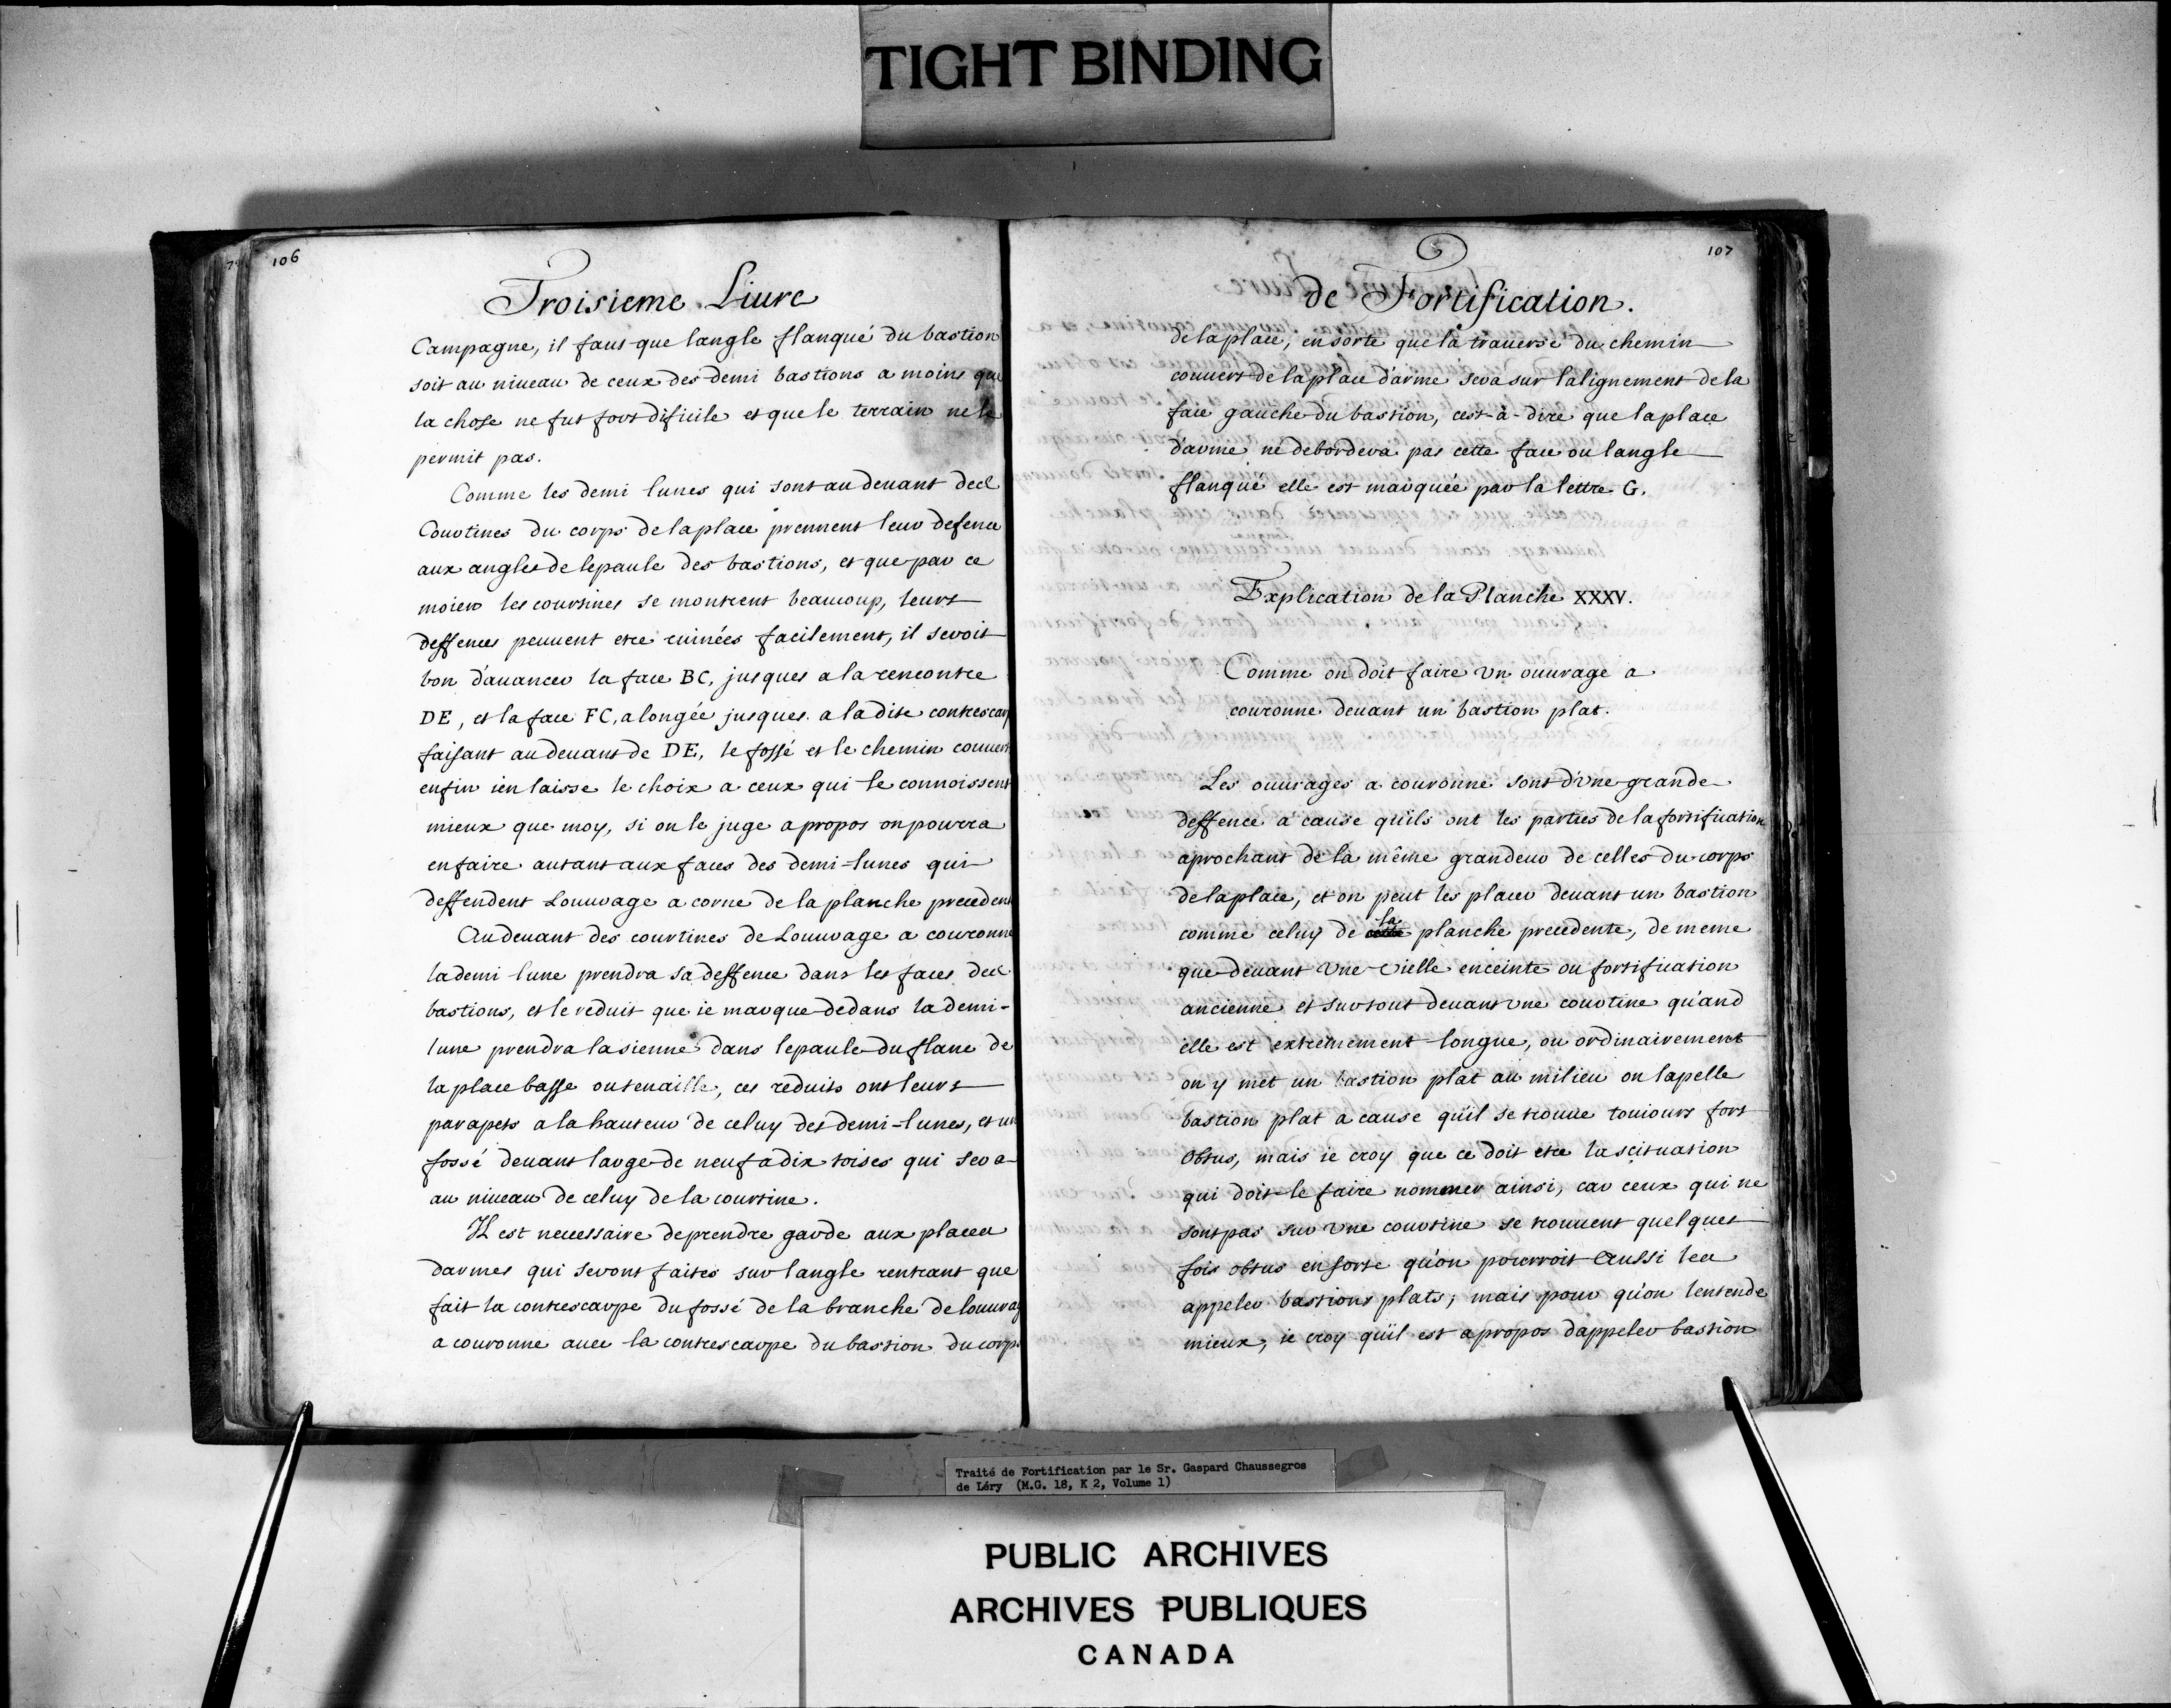 TIGHT BINDING
106
Troisieme Liure
Campagne, il faut que langle flanqué du bastion
soit au niueau de ceux des demi bastions a moins que
la chose ne fut fort dificile et que le terrain ne le
permit pas.
Comme les demi lunes qui sont au deuant des
Courtines du corps de la place prennent leur defence
aux angles de lepaule des bastions, et que par ce
moien les courtines se montrent beaucoup, leurs
deffences peuuent etre ruinées facilement, il seroit
bon d'auancer la face BC, jusques a la rencontre
DE, et la face FC, alongée jusques a la dite contrescarp
faisant au deuant de DE, le fossé et le chemin couuert
enfin ien laisse le choix a ceux qui le connoissent
mieux que moy, si on le juge apropos on pourra
en faire autant aux faces des demi-lunes qui
deffendent Louurage a corne de la planche precedent
Au deuant des courtines de Louurage a couronne
la demi lune prendra sa deffence dans les faces des
bastions, et le reduit que ie marque dedans la demi-
lune prendra la sienne dans lepaule du flanc de
la place basse ou tenaille, ces reduits ont leurs
parapets a la hauteur de celuy des demi-lunes, et un
fossé deuant large de neuf a dix toises qui sera
au niueau de celuy de la courtine.
Il est necessaire de prendre garde aux places
darmes qui seront faites sur langle rentrant que
fait la contrescarpe du fossé de la branche de louurag
a couronne auec la contrescarpe du bastion du corps
107
de Fortification.
de la place, en sorte que la trauerse du chemin
couuert de la place d'arme sera sur lalignement de la
face gauche du bastion, cest-à-dire que la place
d'arme ne debordera pas cette face ou langle
flanqué elle est marquée par la lettre G.
Explication de la Planche XXXV.
Comme on doit faire vn ouurage a
couronne deuant un bastion plat.
Les ouurages a couronne sont d'vne grande
deffence a cause qu'ils ont les parties de la fortification
aprochant de la même grandeur de celles du corps
de la place, et on peut les placer deuant un bastion
comme celuy de la planche precedente, de meme
que deuant vne vielle enceinte ou fortification
ancienne et sur tout deuant vne courtine qu'and
elle est extremement longue, ou ordinairement
on y met un bastion plat au milieu on lapelle
bastion plat a cause qu'il se trouue touiours fort
obtus, mais ie croy que ce doit etre la scituation
qui doit le faire nommer ainsi, car ceux qui ne
sont pas sur vne courtine se trouuent quelques
fois obtus en sorte qu'on pourroit Aussi les
appeler bastions plats; mais pour qu'on lentende
mieux, ie croy qu'il est apropos d'appeler bastion
Traité de Fortification par le Sr. Gaspard Chaussegros
de Léry (M.G. 18, K 2, Volume 1)
PUBLIC ARCHIVES
ARCHIVES PUBLIQUES
CANADA